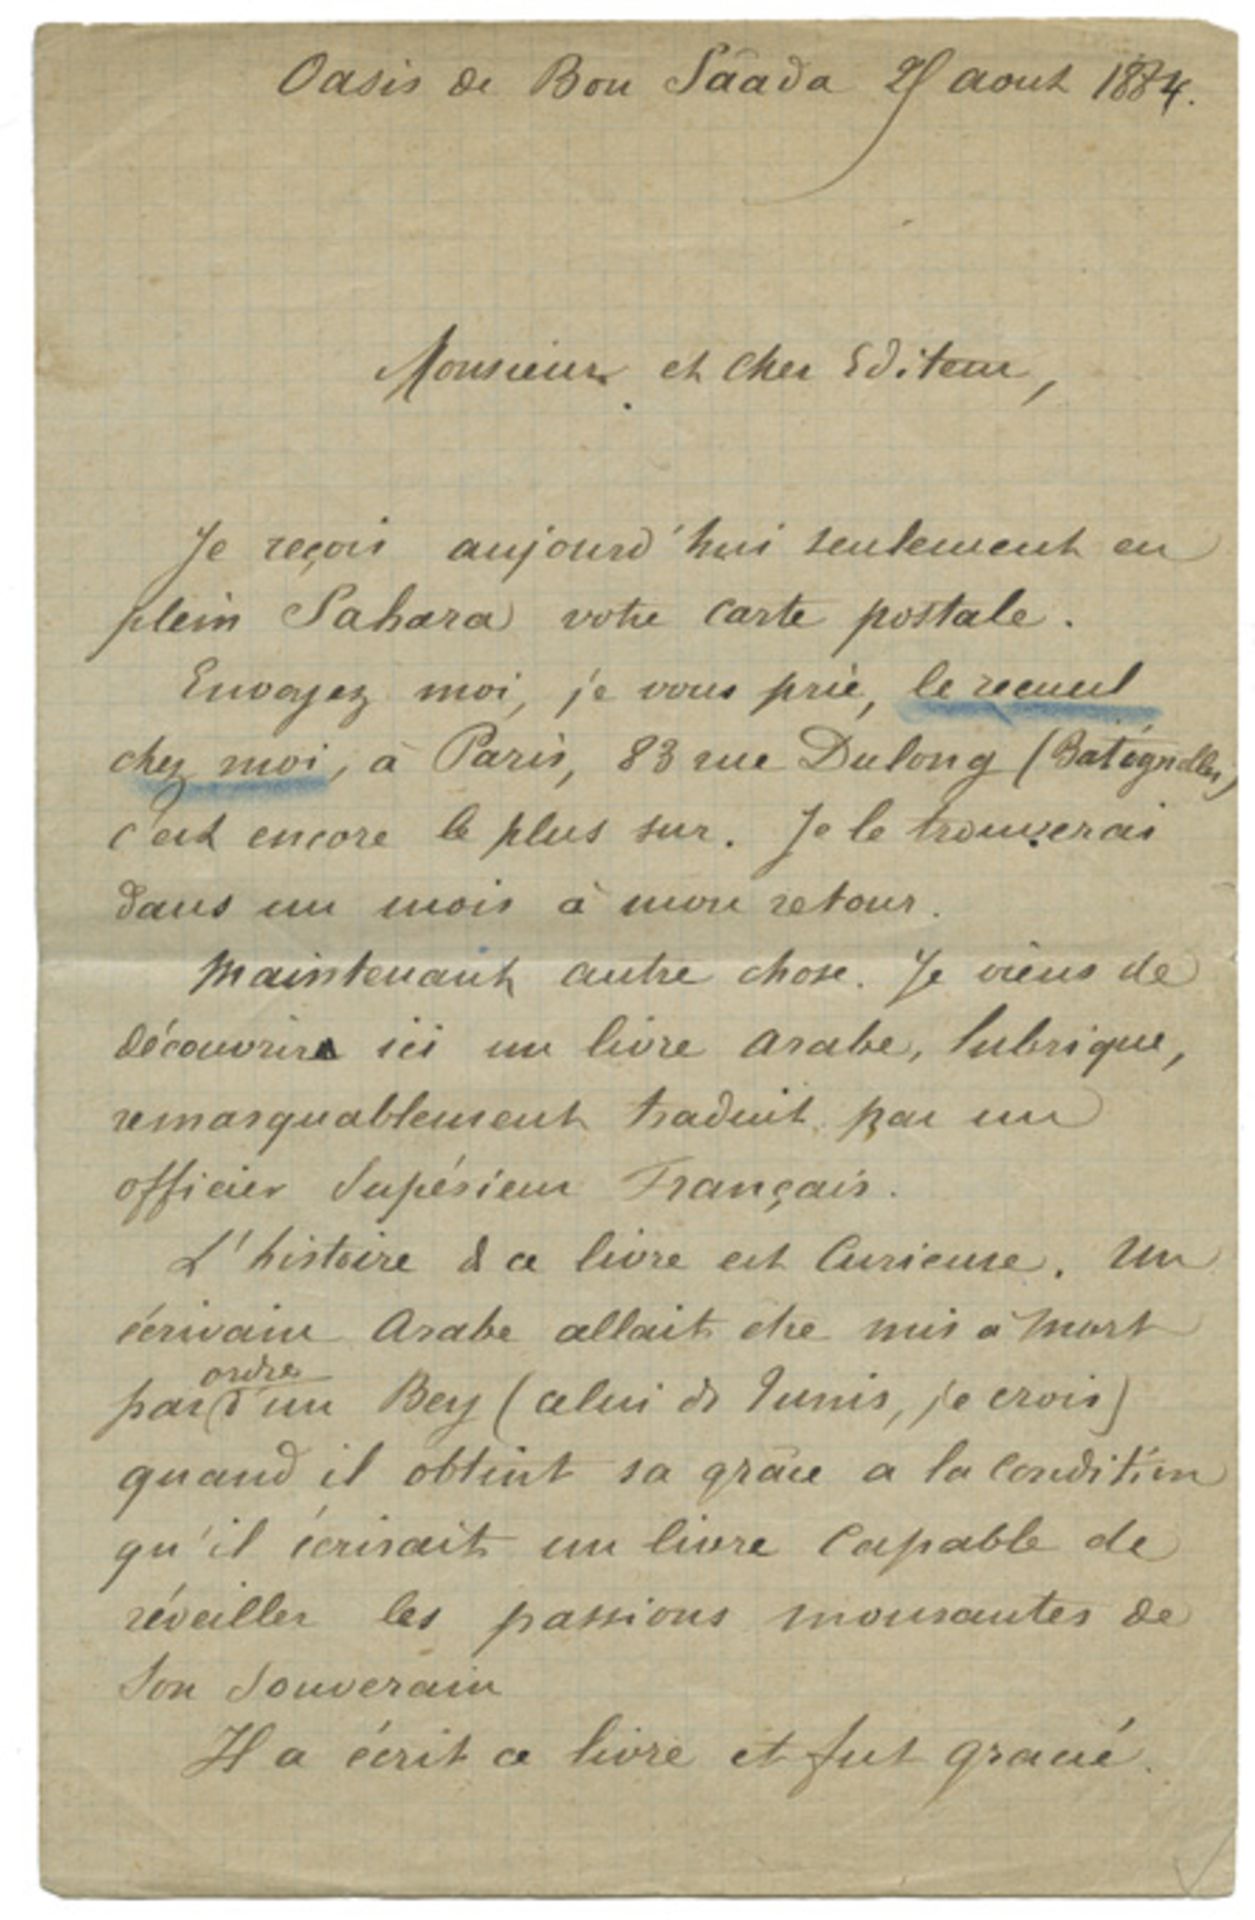 Oasis de Bou Sâada 25 aout 1884.
Monsieur et cher Editeur,
Je reçois aujourd'hui seulement en
plein Sahara votre carte postale.
Envoyez moi, je vous prie, le recueil
chez moi, à Paris, 83 rue Dulong (Batignolles)
c'est encore le plus sur. Je le trouverai
dans un mois à mon retour.
Maintenant autre chose. Je viens de
découvrir ici un livre arabe, lubrique,
remarquablement traduit par un
officier Supérieur Français.
L'histoire de ce livre est Curieuse. Un
écrivain Arabe allait être mis à Mort
par ordre d'un Bey (celui de Tunis, je crois)
quand il obtint sa grâce a la Condition
qu'il écrirait un livre Capable de
réveiller les passions mourantes de
Son Souverain
Il a écrit ce livre et fut gracié.